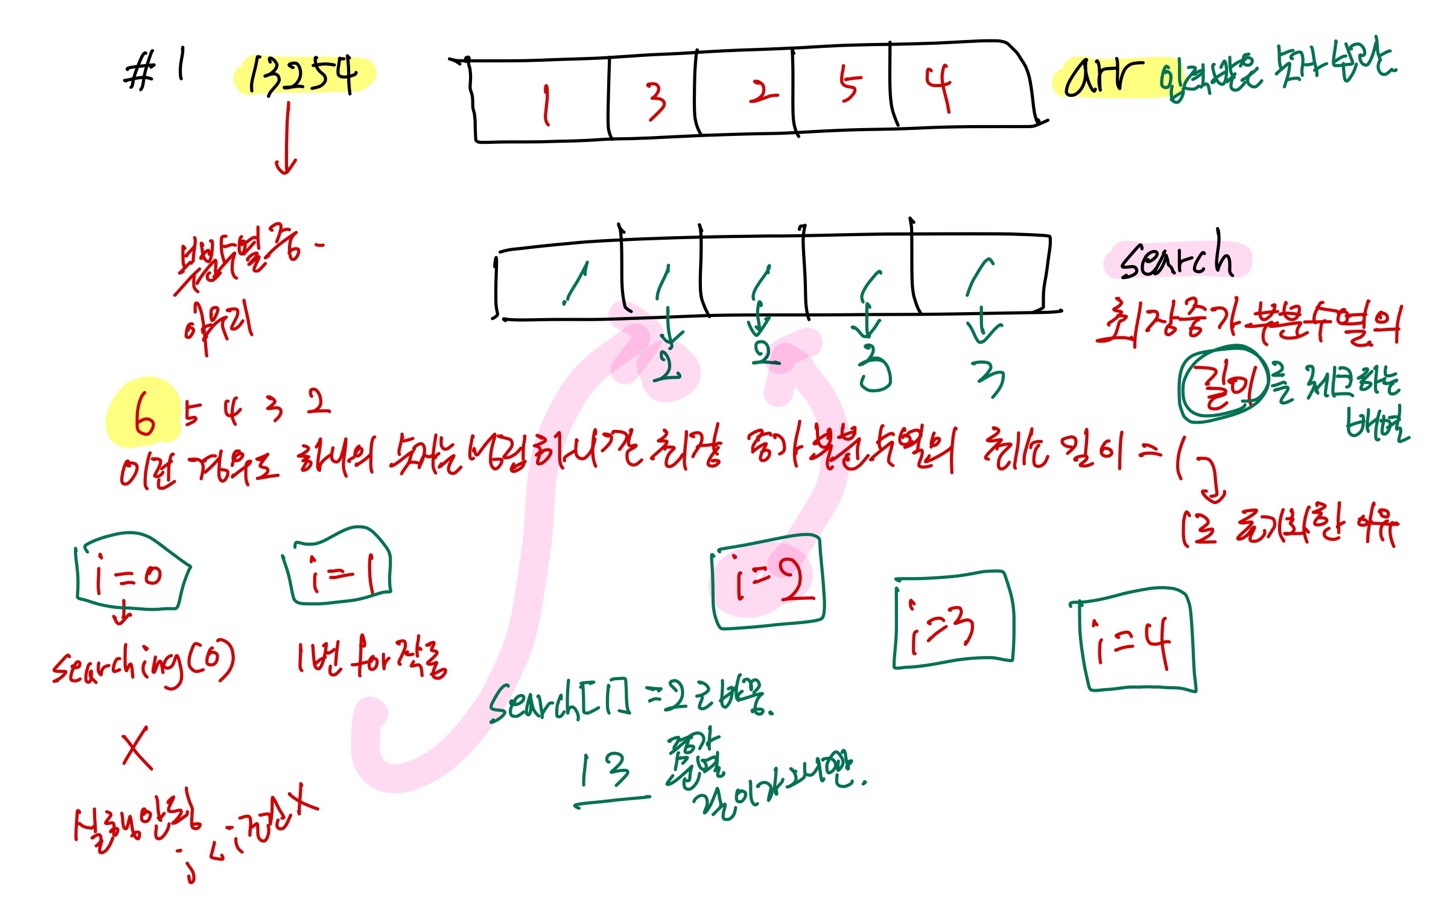 #1 13254
1 3 2 5 4
arr 입력받은 숫자
부분수열 중
아무리
1 1 1 1 1
2 2 3 3
search
최장증가 부분수열의
길이를 체크하는
배열
6 5 4 3 2
이런 경우도 하나의 숫자는 성립하니깐 최장 증가 부분수열의 최소 길이 = 1
1로 초기화한 이유
i=0
searching(0)
X
실행안됨
j < i 조건 X
i=1
1번 for작동
search[1] = 2로 바뀜.
13 증가
수열
길이가 2니깐.
i=2
i=3
i=4